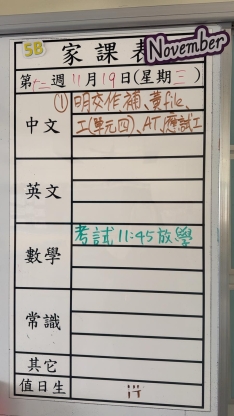 5B 家課表 November
第十二週11月19日(星期三)
中文 ①明交作補、黃file、
工(單元四)、AT、應試工
英文
數學 考試11:45放學
常識
其它
值日生